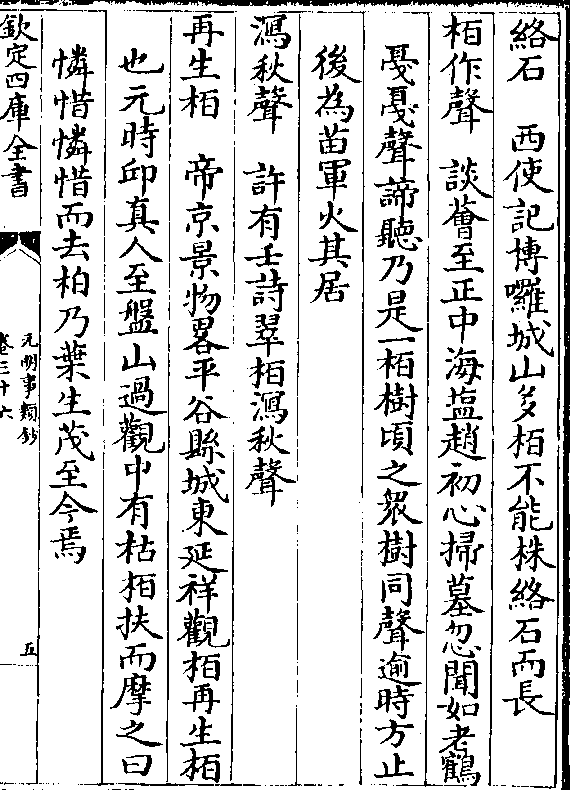 絡石　西使記博囉城山多栢不能株絡石而長
栢作聲　談薈至正中海盐趙初心掃墓忽聞如老鶴
戛戛聲諦聽乃是一栢樹頃之衆樹同聲逾時方止
後為苗軍火其居
瀉秋聲　許有壬詩翠栢瀉秋聲
再生栢　帝京景物畧平谷縣城東延祥觀栢再生栢
也元時邱真人至盤山過觀中有枯栢扶而摩之曰
憐惜憐惜而去柏乃葉生茂至今焉
欽定四庫全書
元明事類鈔
卷三十六
五